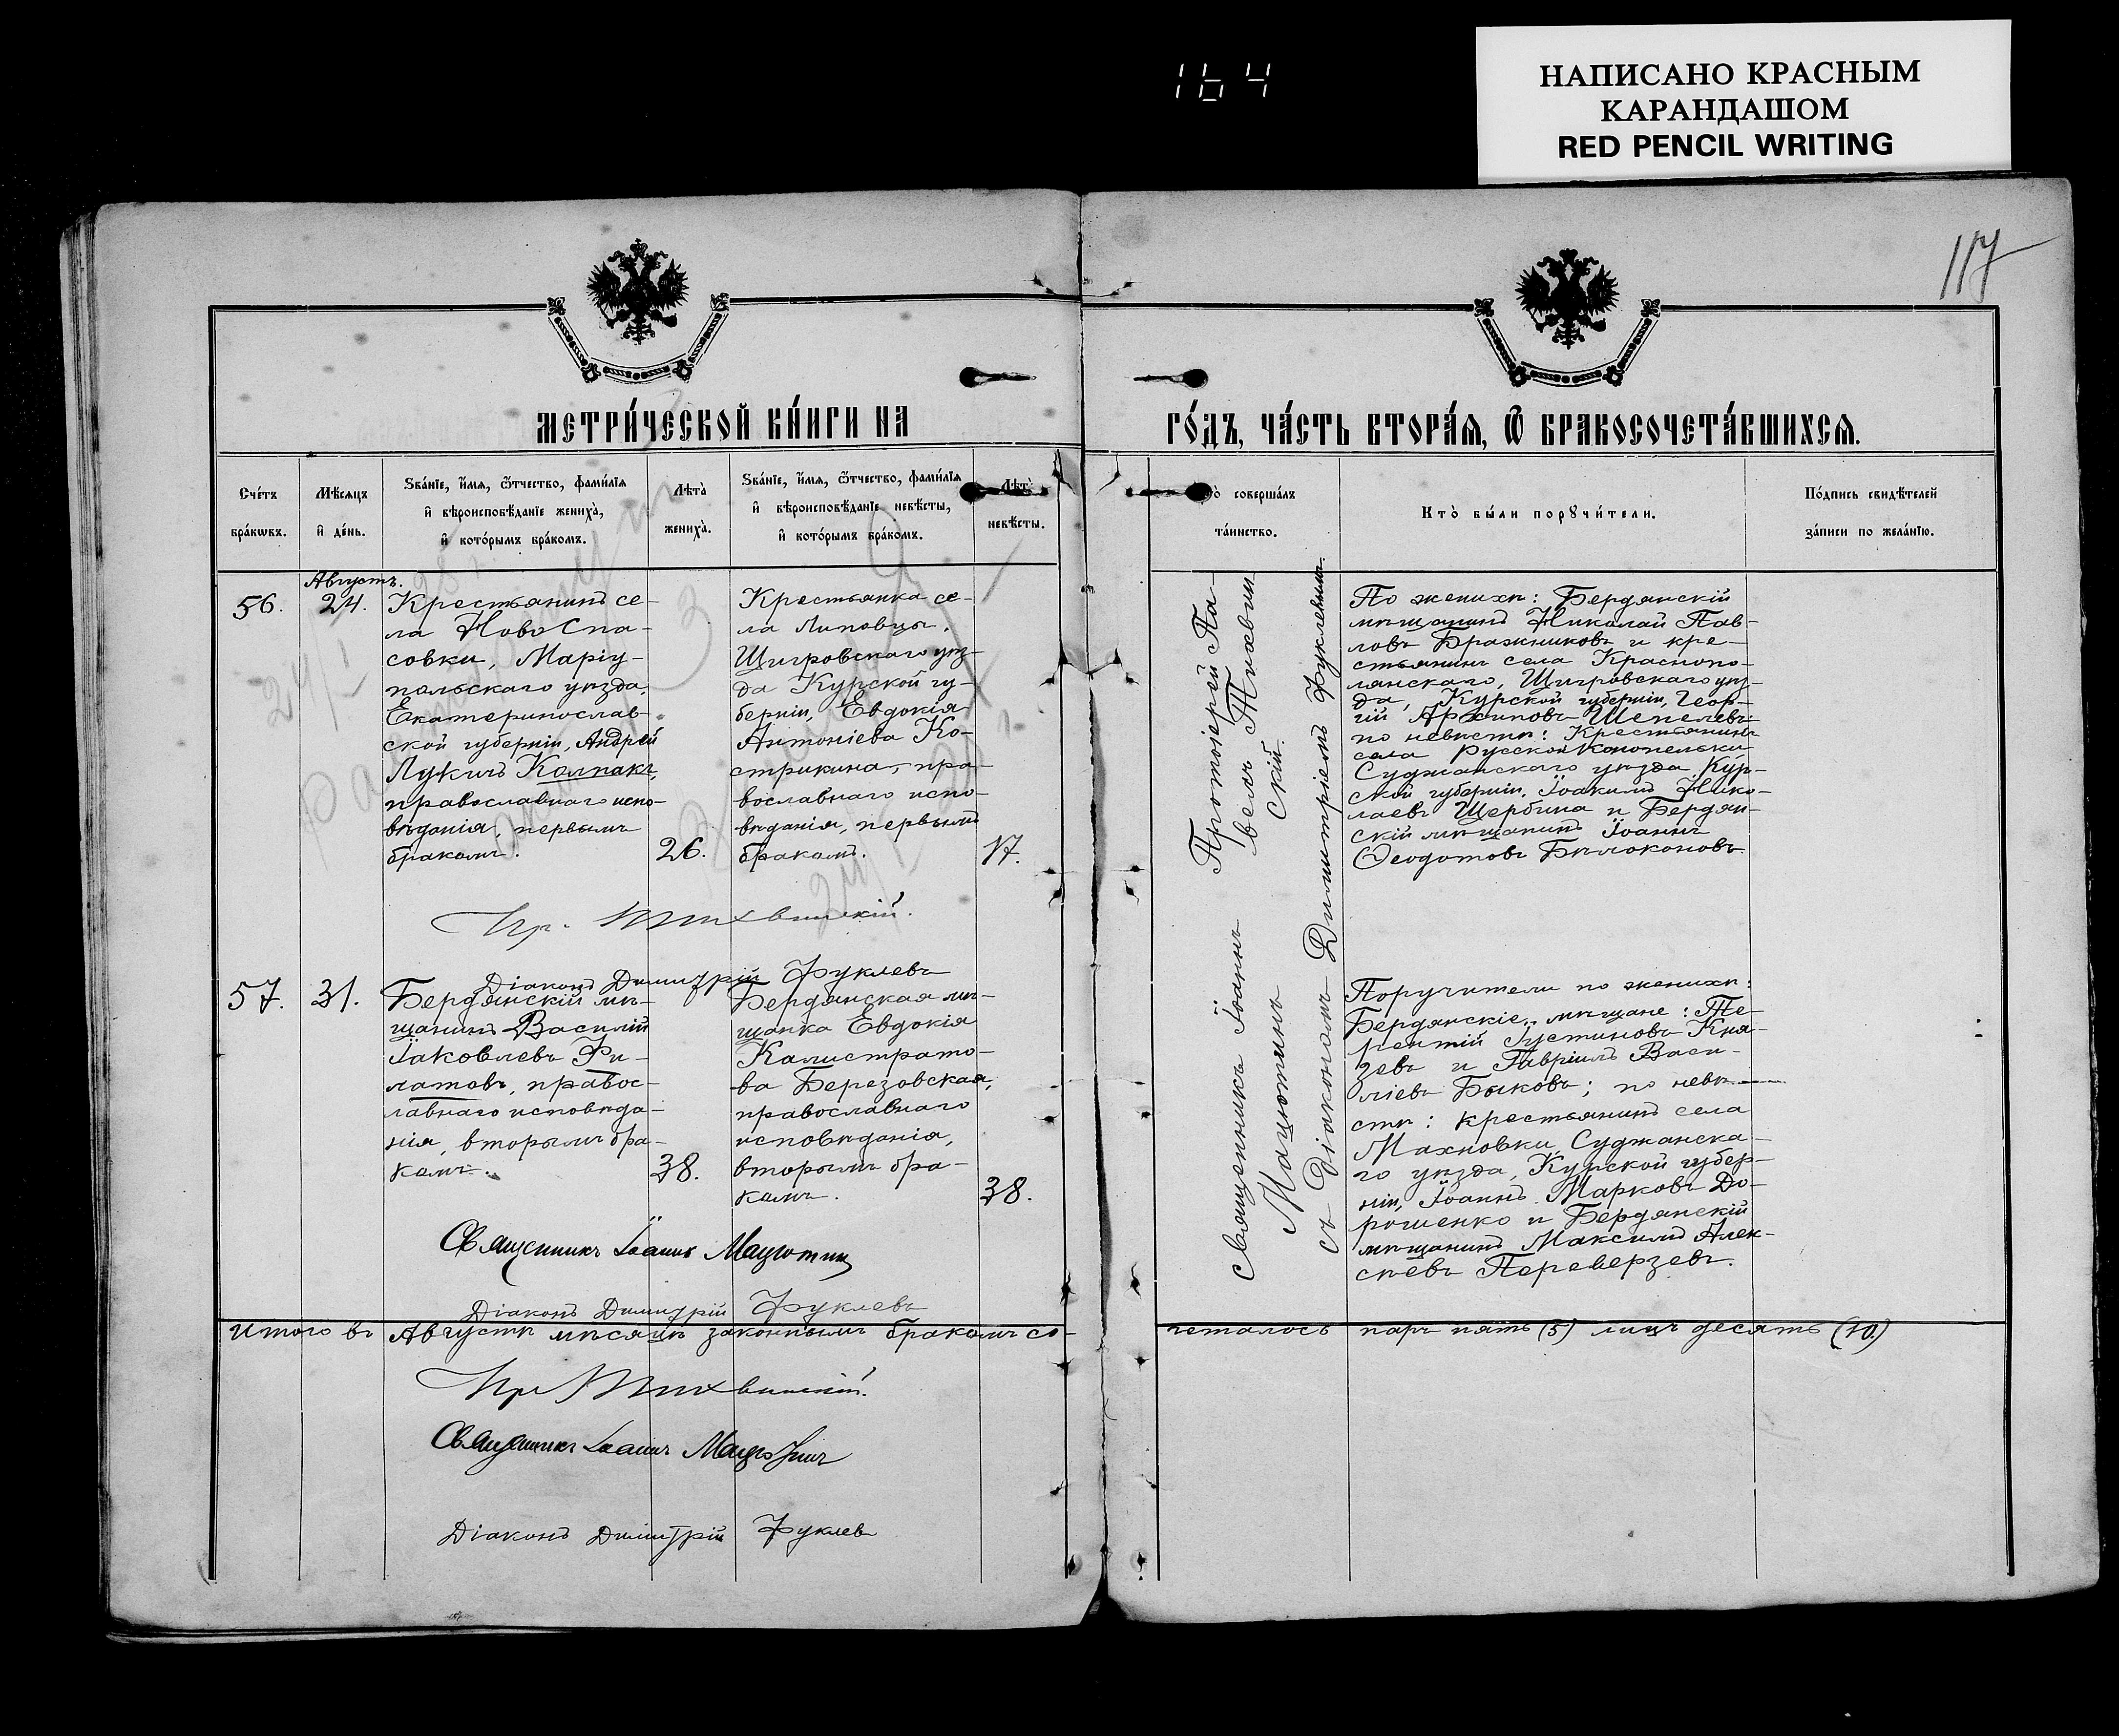 164
НАПИСАНО КРАСНЫМ
КАРАНДАШОМ
RED PENCIL WRITING
117
МЕТРИ́ЧЕСКОЙ КНИ́ГИ НА
ГО́ДЪ, ЧА́СТЬ ВТОРА́Я, Ѽ БРАКОСОЧЕТА́ВШИХСЯ.
Сче́тъ
бра́кѡвъ.
Мѣ́сяцъ
и҆ де́нь.
Ѕва́нїе, и҆́мя, ѻ҆́тчество, фами́лїя
и҆ вѣроисповѣ́данїе жениха̀,
и҆ кото́рымъ бра́комъ.
Лѣта̀
жениха̀.
Ѕва́нїе, и҆́мя, ѻ҆́тчество, фами́лїя
и҆ вѣроисповѣ́данїе невѣ́сты,
и҆ кото́рымъ бра́комъ.
Лѣта̀
невѣ́сты.
совершáлъ
та́инство.
Кто̀ бы́ли порꙋчи́тели.
По́дпись свидѣ́телей
за́писи по жела́нїю.
Августъ.
56.
24.
Крестьянинъ се-
ла НовоСпа-
совки, Маріу-
польскаго уѣзда,
Екатеринослав-
ской губерніи, Андрей
Лукичъ Колпакъ,
православнаго испо-
вѣданія, первымъ
бракомъ.
26.
Крестьянка се-
ла Липовцы,
Щигровскаго уѣз-
да Курской гу-
берніи, Евдокія
Антоніева Ко-
стрикина, пра-
вославнаго испо-
вѣданія, первымъ
бракомъ.
17.
Протоіерей Па-
велъ Тихвин-
скій.
По женихѣ: Бердянскій
мѣщанинъ Николай Пав-
ловъ Бражниковъ и кре-
стьянинъ села Краснопо-
лянскаго, Щигровскаго уѣз-
да, Курской губерніи, Геор-
гій Архиповъ Шепелевъ
по невѣстѣ: Крестьянинъ
села Русской Конопельки
Суджанскаго уѣзда, Кур-
ской губерніи, Іоакимъ Нико-
лаевъ Щербина и Бердян-
скій мѣщанинъ Іоаннъ
Ѳеодотовъ Бѣлоконовъ.
Пр. Тихвинскій.
Діаконъ Димитрій Фуклевъ
57.
31.
Бердянскій мѣ-
щанинъ Василій
Іаковлевъ Фи-
латовъ, правос-
лавнаго исповѣда-
нія, вторымъ бра-
комъ.
38.
Бердянская мѣ-
щанка Евдокія
Калистрато-
ва Березовская,
православнаго
исповѣданія,
вторымъ бра-
комъ.
38.
Священникъ Іоаннъ
Мацютинъ
съ Діакономъ Димитріемъ Фуклевымъ.
Поручители по женихѣ:
Бердянскіе мѣщане: Те-
рентій Іустиновъ Кня-
зевъ и Гавріилъ Васи-
ліевъ Быковъ; по невѣ-
стѣ: крестьянинъ села
Махновки, Суджанска-
го уѣзда, Курской губер-
ніи, Іоаннъ Марковъ До-
рошенко и Бердянскій
мѣщанинъ Максимъ Алек-
сѣевъ Переверзевъ.
Священникъ Іоаннъ Мацютинъ
Діаконъ Димитрій Фуклевъ
Итого въ Августѣ мѣсяцѣ законнымъ бракомъ со-
четалось паръ пять (5) лицъ десять (10.)
Пр Тихвинскій.
Священникъ Іоаннъ Мацютинъ
Діаконъ Димитрій Фуклевъ